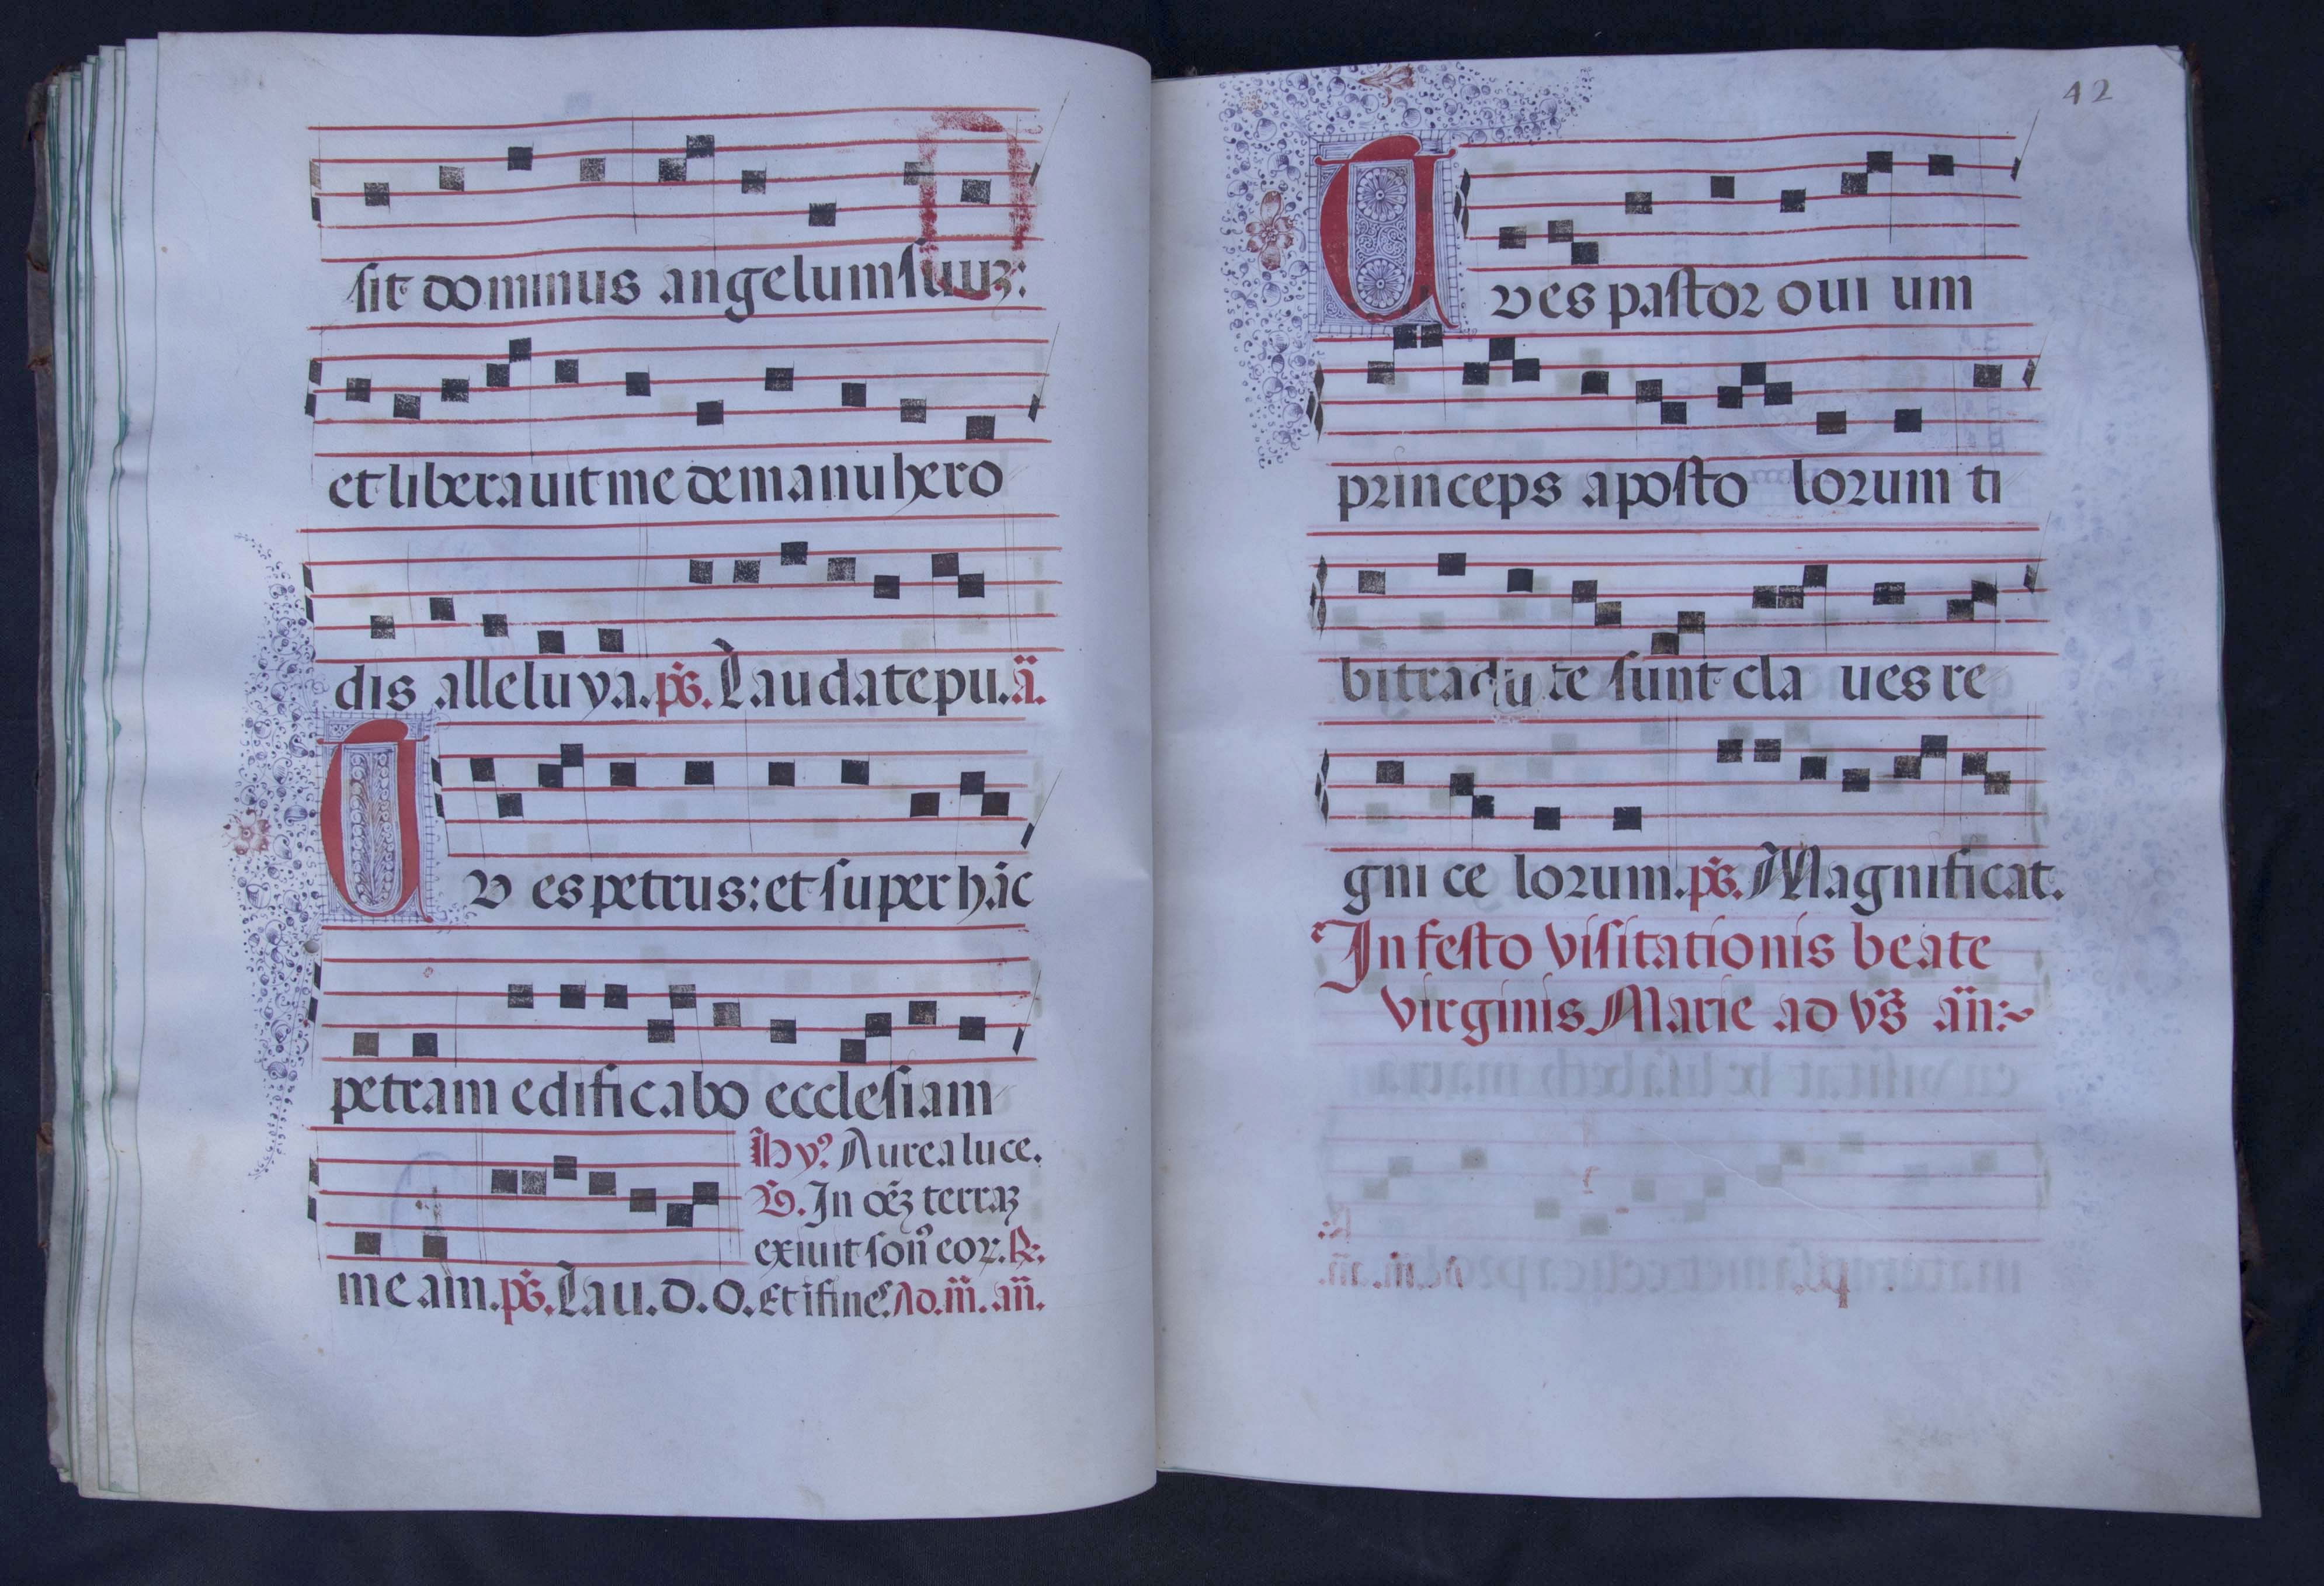 sit dominus angelum suuʒ:
et liberauit me de manu hero
dis alleluya. ps̃. Laudate pu. ã.
Tv es petrus: et super hãc
petram edificabo ecclesiam
Hy⁹. Aurea luce.
In oẽʒ terraʒ
exiuit son⁹ eoꝝ. ℞.
meam. ps̃. Lau. d. o. Et ĩ fine. Ad. m̃. añ.
42
Tv es pastor ouium
princeps apostolorum ti
bi tradite sunt claues re
gni celorum. ps̃. Magnificat.
In festo visitationis beate
virginis Marie ad vs̃ añ:~